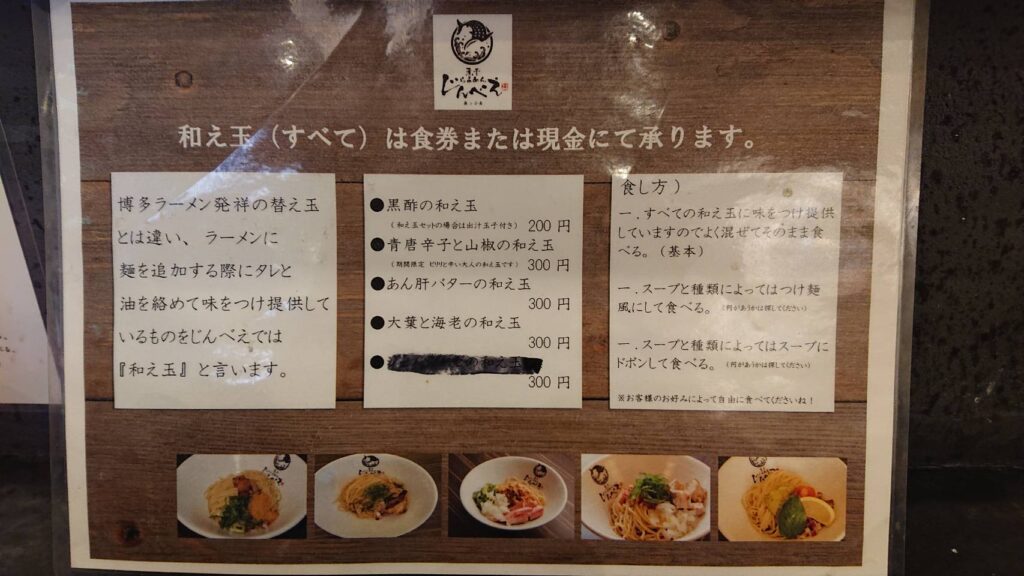 じんべえ
和え玉（すべて）は食券または現金にて承ります。
博多ラーメン発祥の替え玉
とは違い、ラーメンに
麺を追加する際にタレと
油を絡めて味をつけ提供して
いるものをじんべえでは
『和え玉』と言います。
●黒酢の和え玉
（和え玉セットの場合は出汁玉子付き） 200円
●青唐辛子と山椒の和え玉
（期間限定 ピリリと辛い大人の和え玉です） 300円
●あん肝バターの和え玉
300円
●大葉と海老の和え玉
300円
●
300円
食し方）
一．すべての和え玉に味をつけ提供
していますのでよく混ぜてそのまま食
べる。（基本）
一．スープと種類によってはつけ麺
風にして食べる。（何があうかは探してください）
一．スープと種類によってはスープに
ドボンして食べる。（何があうかは探してください）
※お客様のお好みによって自由に食べてくださいね！